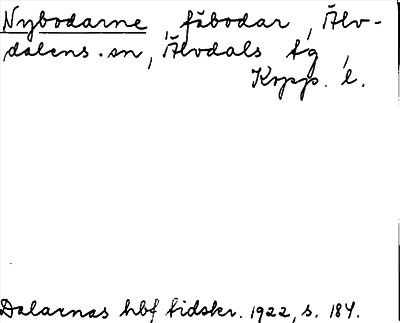 Nybodarne, fäbodar, Älv-
dalens sn, Älvdals tg,
Kopp. l.
Dalarnas hbf tidskr. 1922, s. 184.